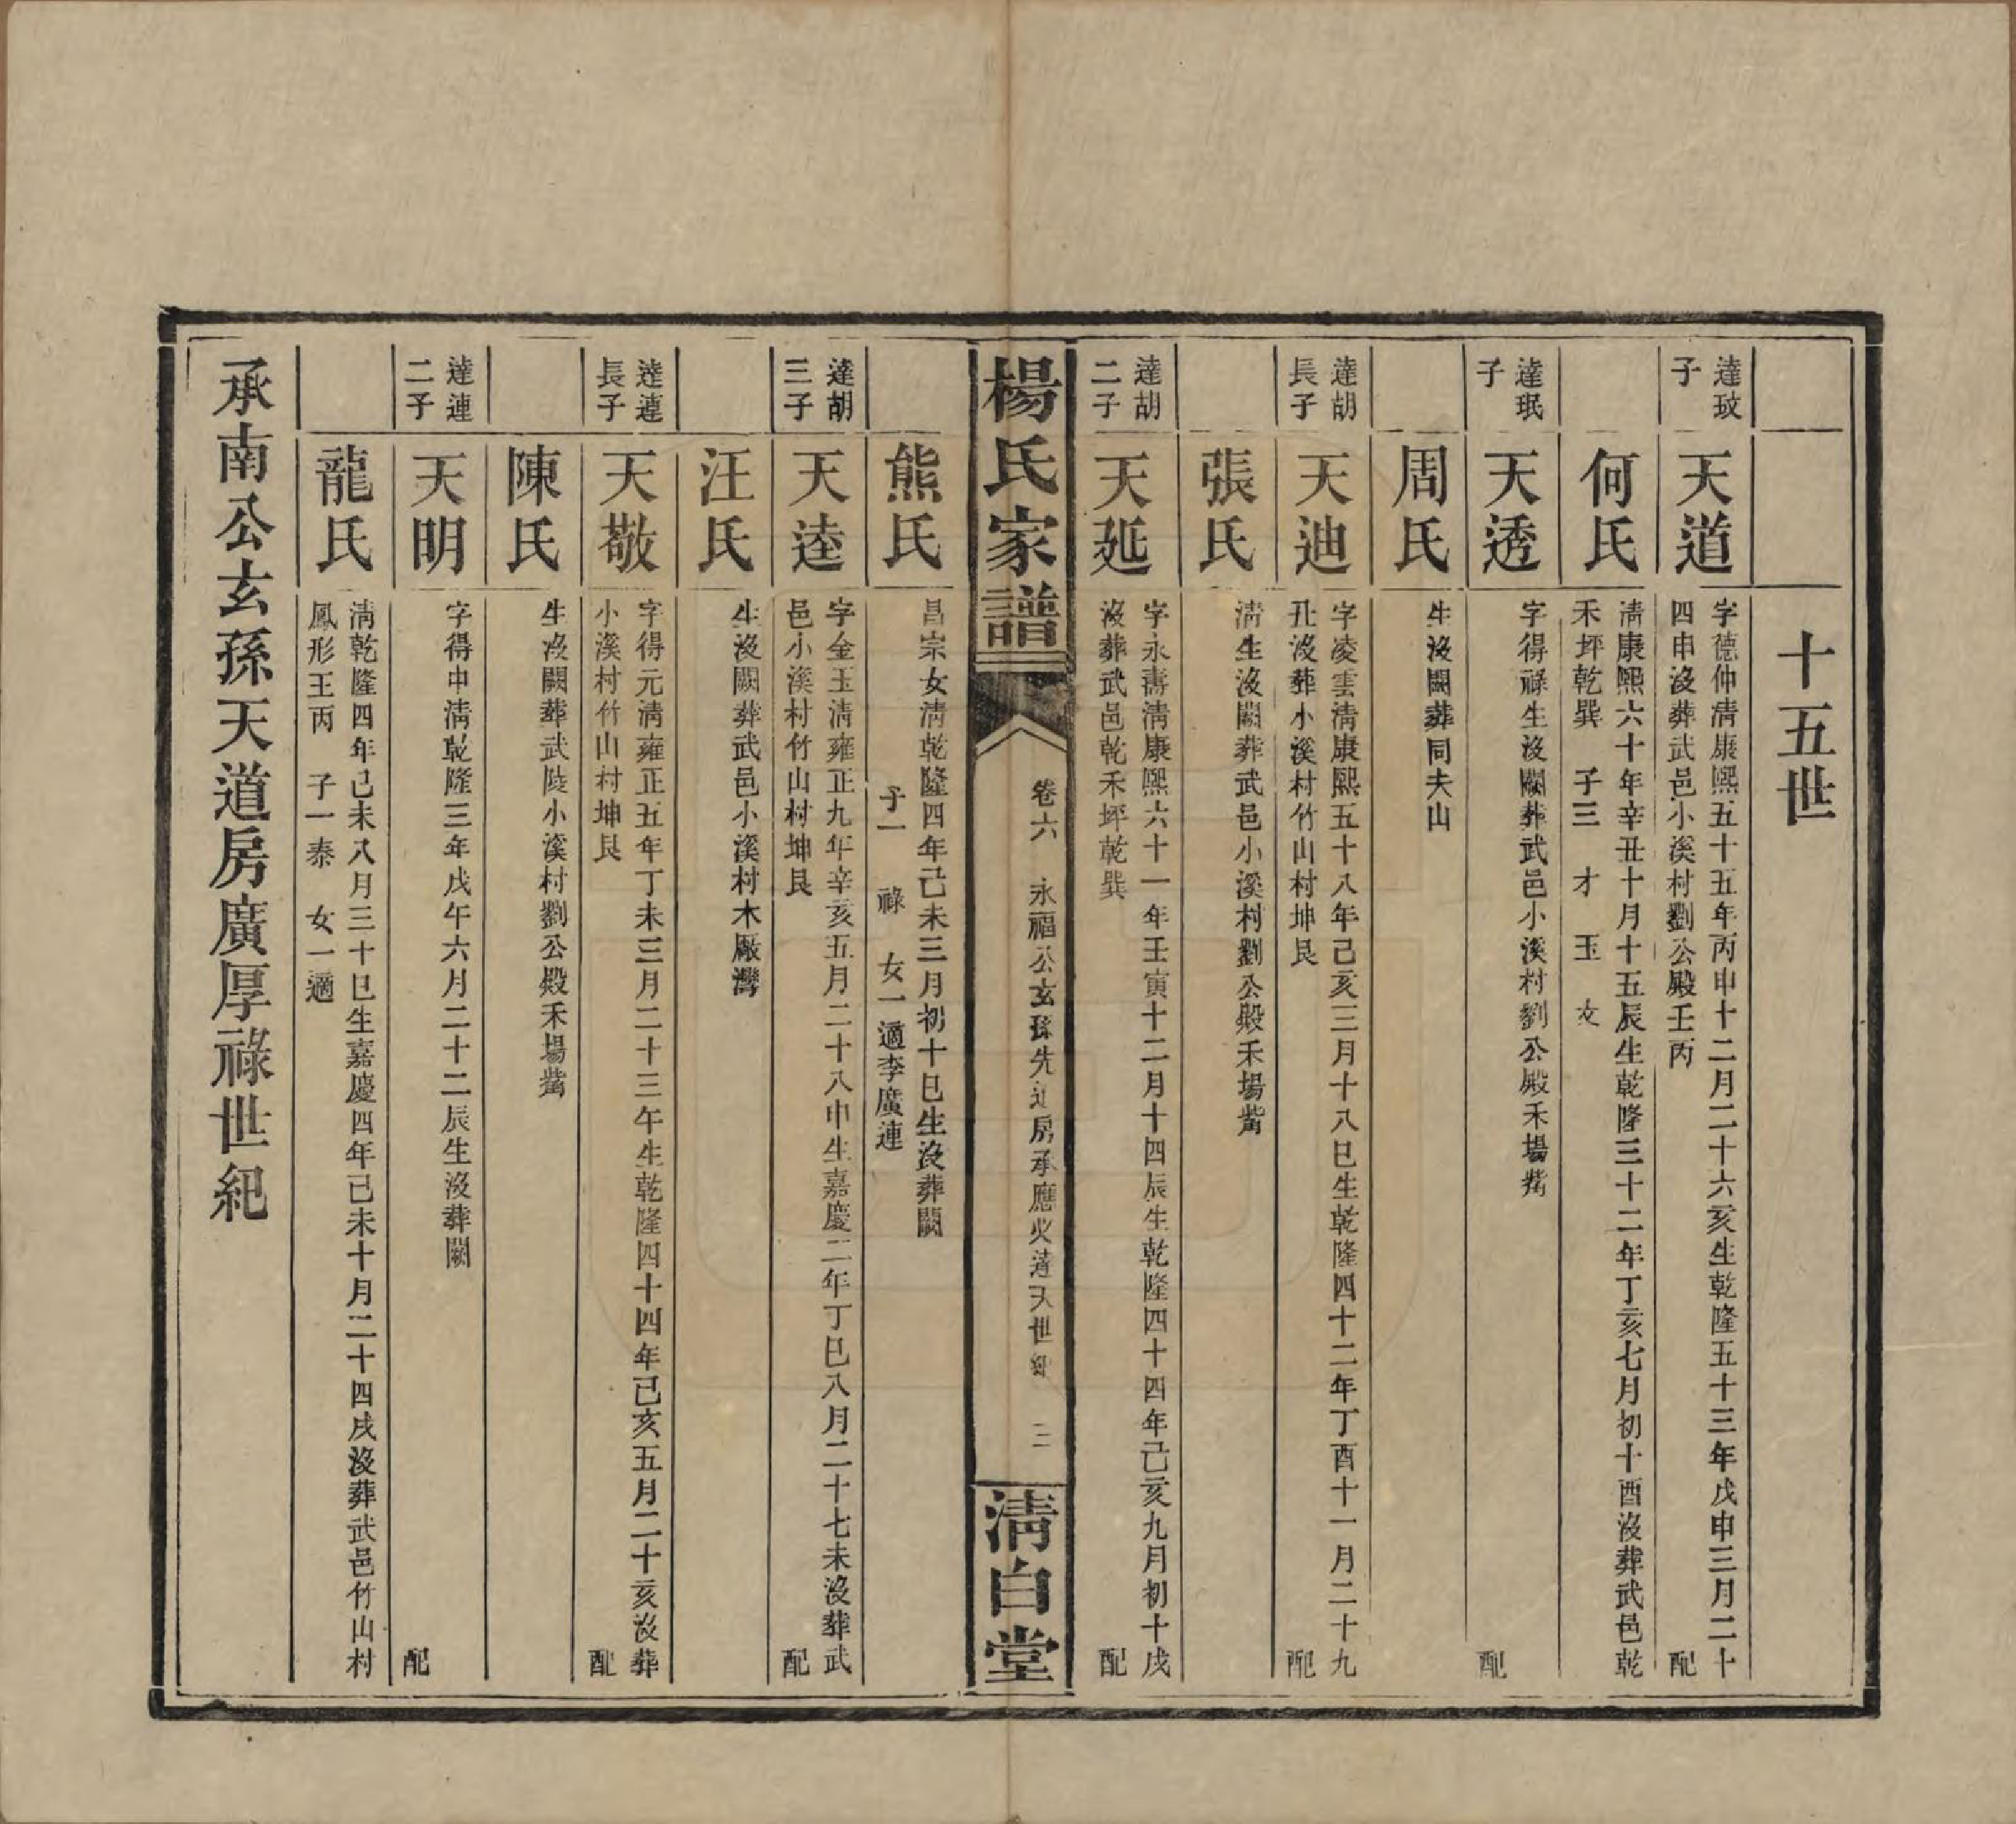 十五世
達玟
子
天道
字德仲清康熙五十五年丙申十二月二十六亥生乾隆五十三年戊申三月二十
四申沒葬武邑小溪村劉公殿壬丙
配
何氏
清康熙六十年辛丑十月十五辰生乾隆三十二年丁亥七月初十酉沒葬武邑乾
禾坪乾巽　子三　才　玉　文
達珉
子
天透
字得祿生沒闕葬武邑小溪村劉公殿禾場觜
配
周氏
生沒闕葬同夫山
達胡
長子
天迪
字凌雲清康熙五十八年己亥三月十八巳生乾隆四十二年丁酉十一月二十九
丑沒葬小溪村竹山村坤艮
配
張氏
清生沒闕葬武邑小溪村劉公殿禾場觜
達胡
二子
天延
字永壽清康熙六十一年壬寅十二月十四辰生乾隆四十四年己亥九月初十戌
沒葬武邑乾禾坪乾巽
配
楊氏家譜
卷六　永福公玄孫先進房承應火清天世紀　二
清白堂
熊氏
昌宗女清乾隆四年己未三月初十巳生沒葬闕
子一　祿　女一適李廣連
達胡
三子
天逵
字金玉清雍正九年辛亥五月二十八申生嘉慶二年丁巳八月二十七未沒葬武
邑小溪村竹山村坤艮
配
汪氏
生沒闕葬武邑小溪村木廠灣
達連
長子
天敬
字得元清雍正五年丁未三月二十三午生乾隆四十四年己亥五月二十亥沒葬
小溪村竹山村坤艮
配
陳氏
生沒闕葬武陵小溪村劉公殿禾場觜
達連
二子
天明
字得中清乾隆三年戊午六月二十二辰生沒葬闕
配
龍氏
清乾隆四年己未八月三十巳生嘉慶四年己未十月二十四戌沒葬武邑竹山村
鳳形王丙　子一泰　女一適
承南公玄孫天道房廣厚祿世紀